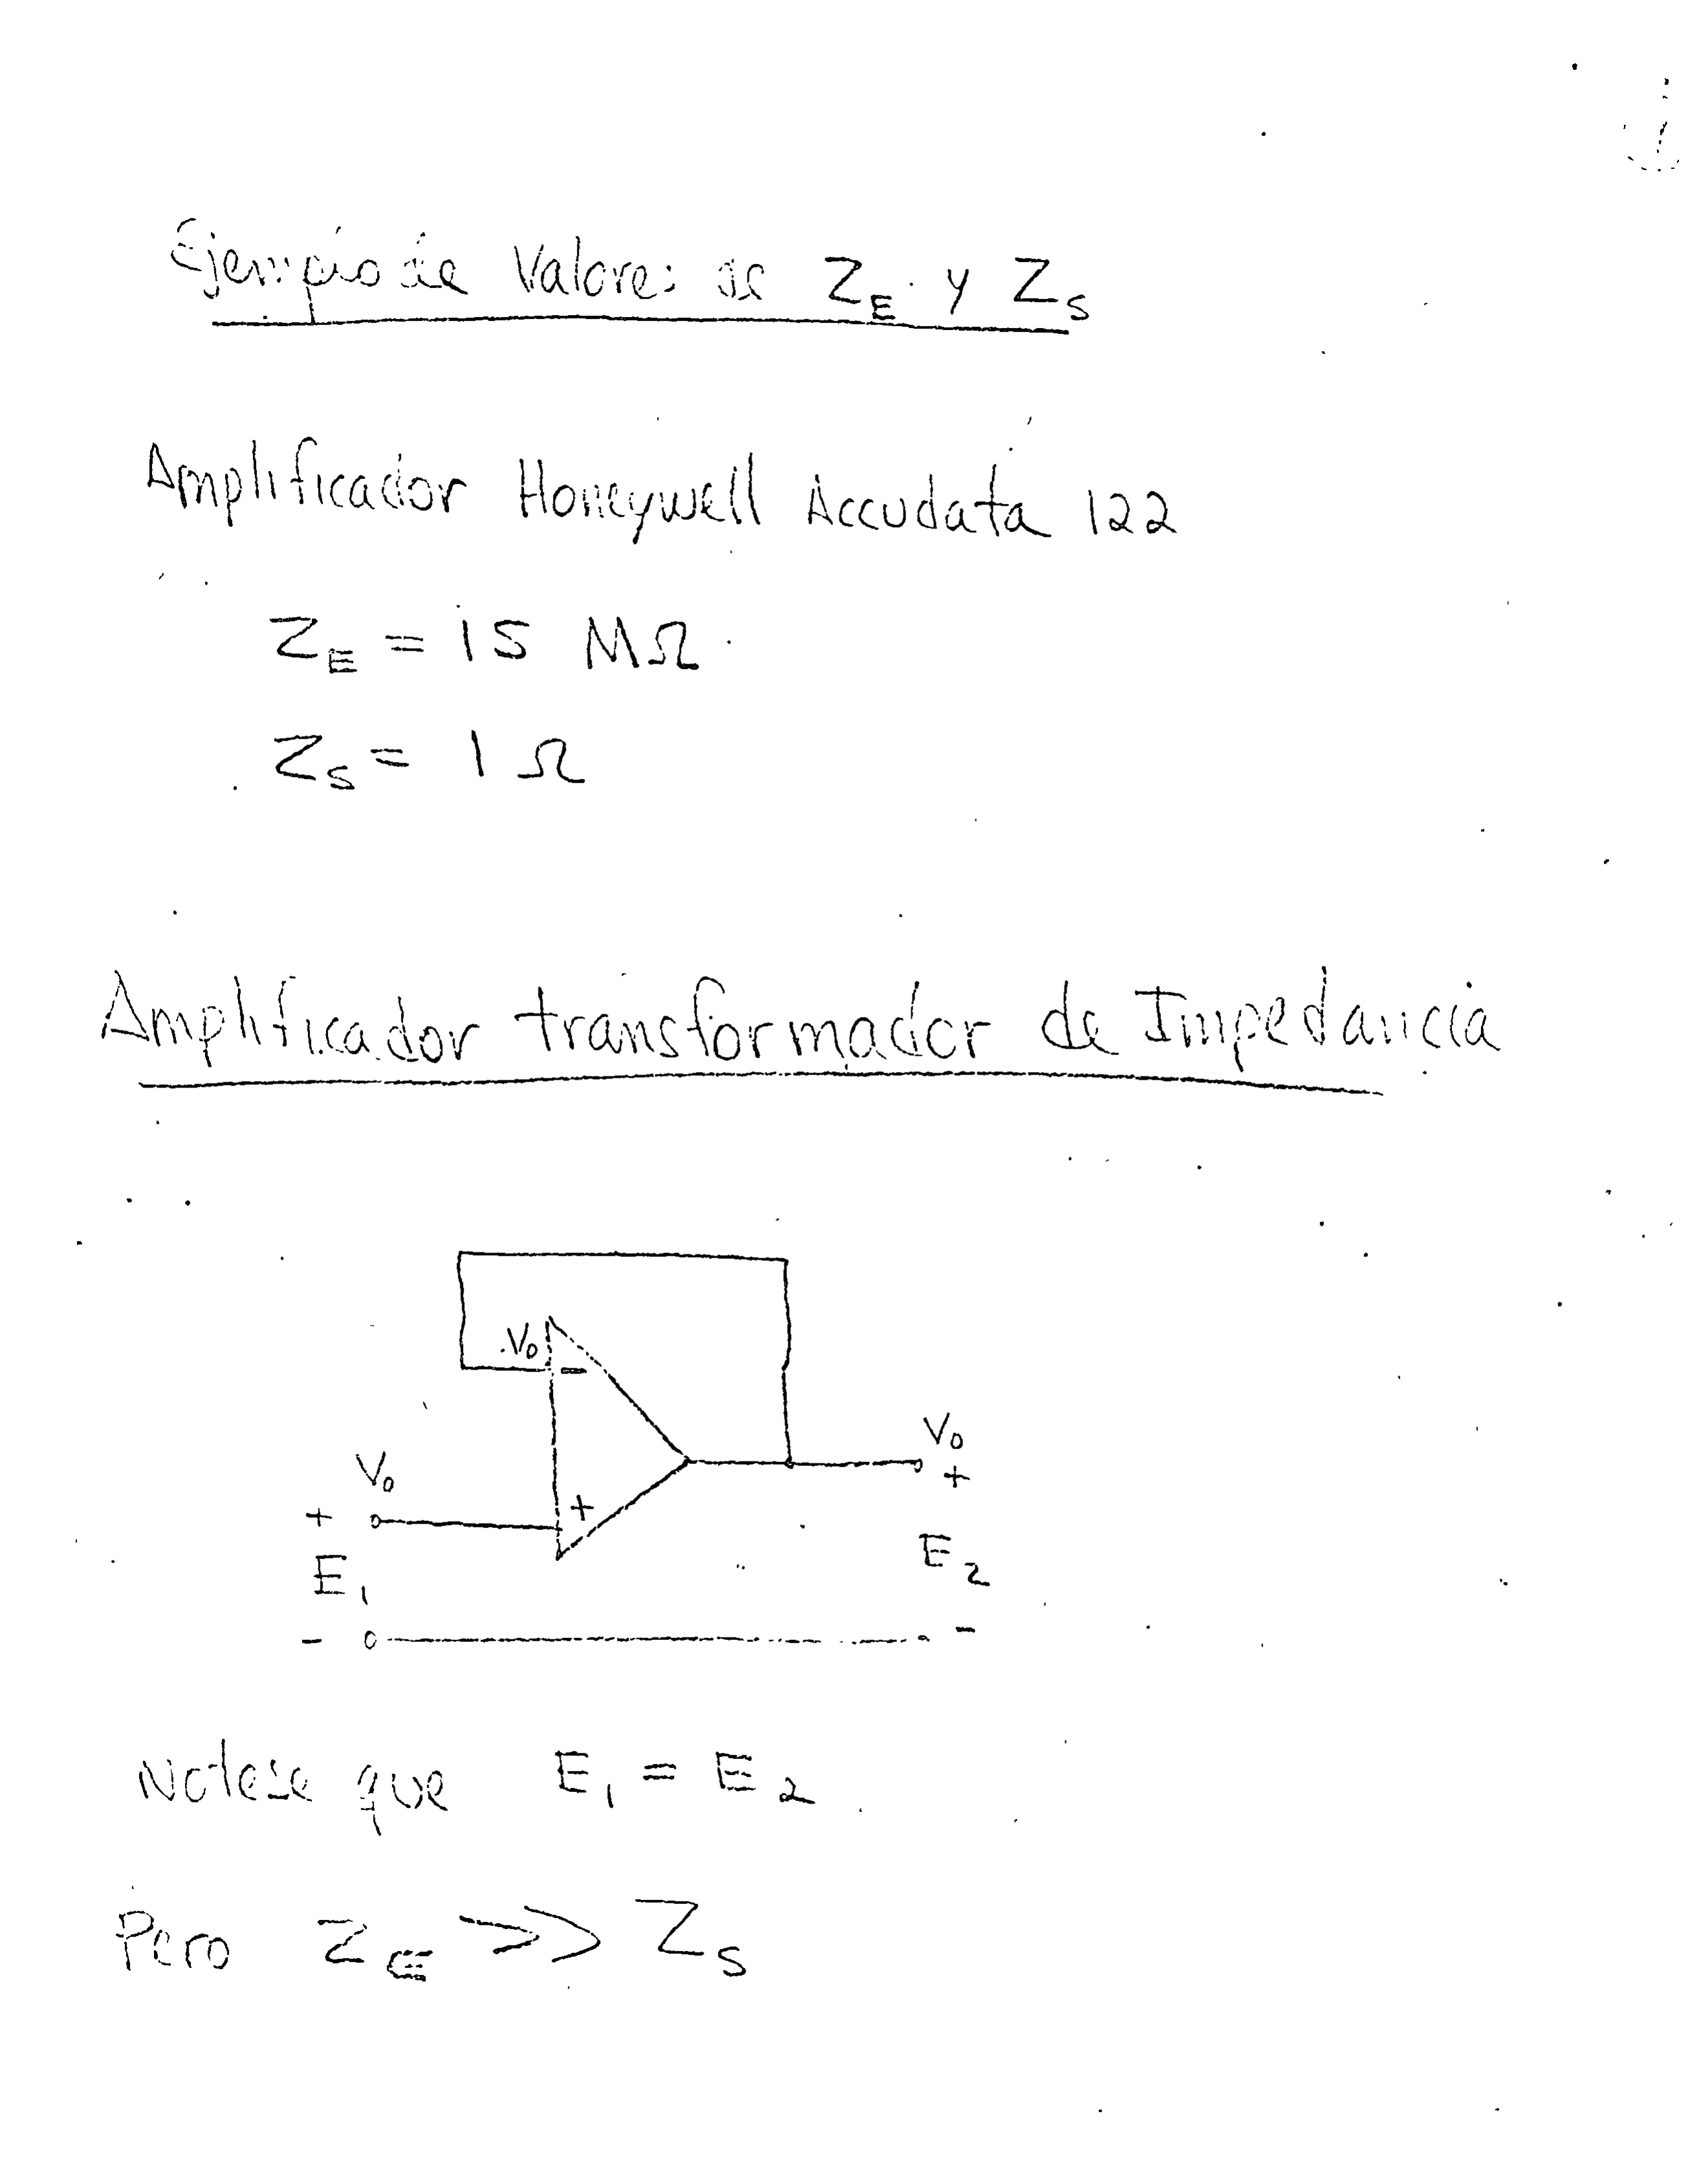 Ejemplo de Valores de Z_E y Z_S
Amplificador Honeywell Accudata 122
Z_E = 15 MΩ
Z_S = 1 Ω
Amplificador transformador de Impedancia
V_0
-
V_0
V_0
+
+
+
E_1
E_2
-
-
Notese que E_1 = E_2
Pero Z_E >> Z_S